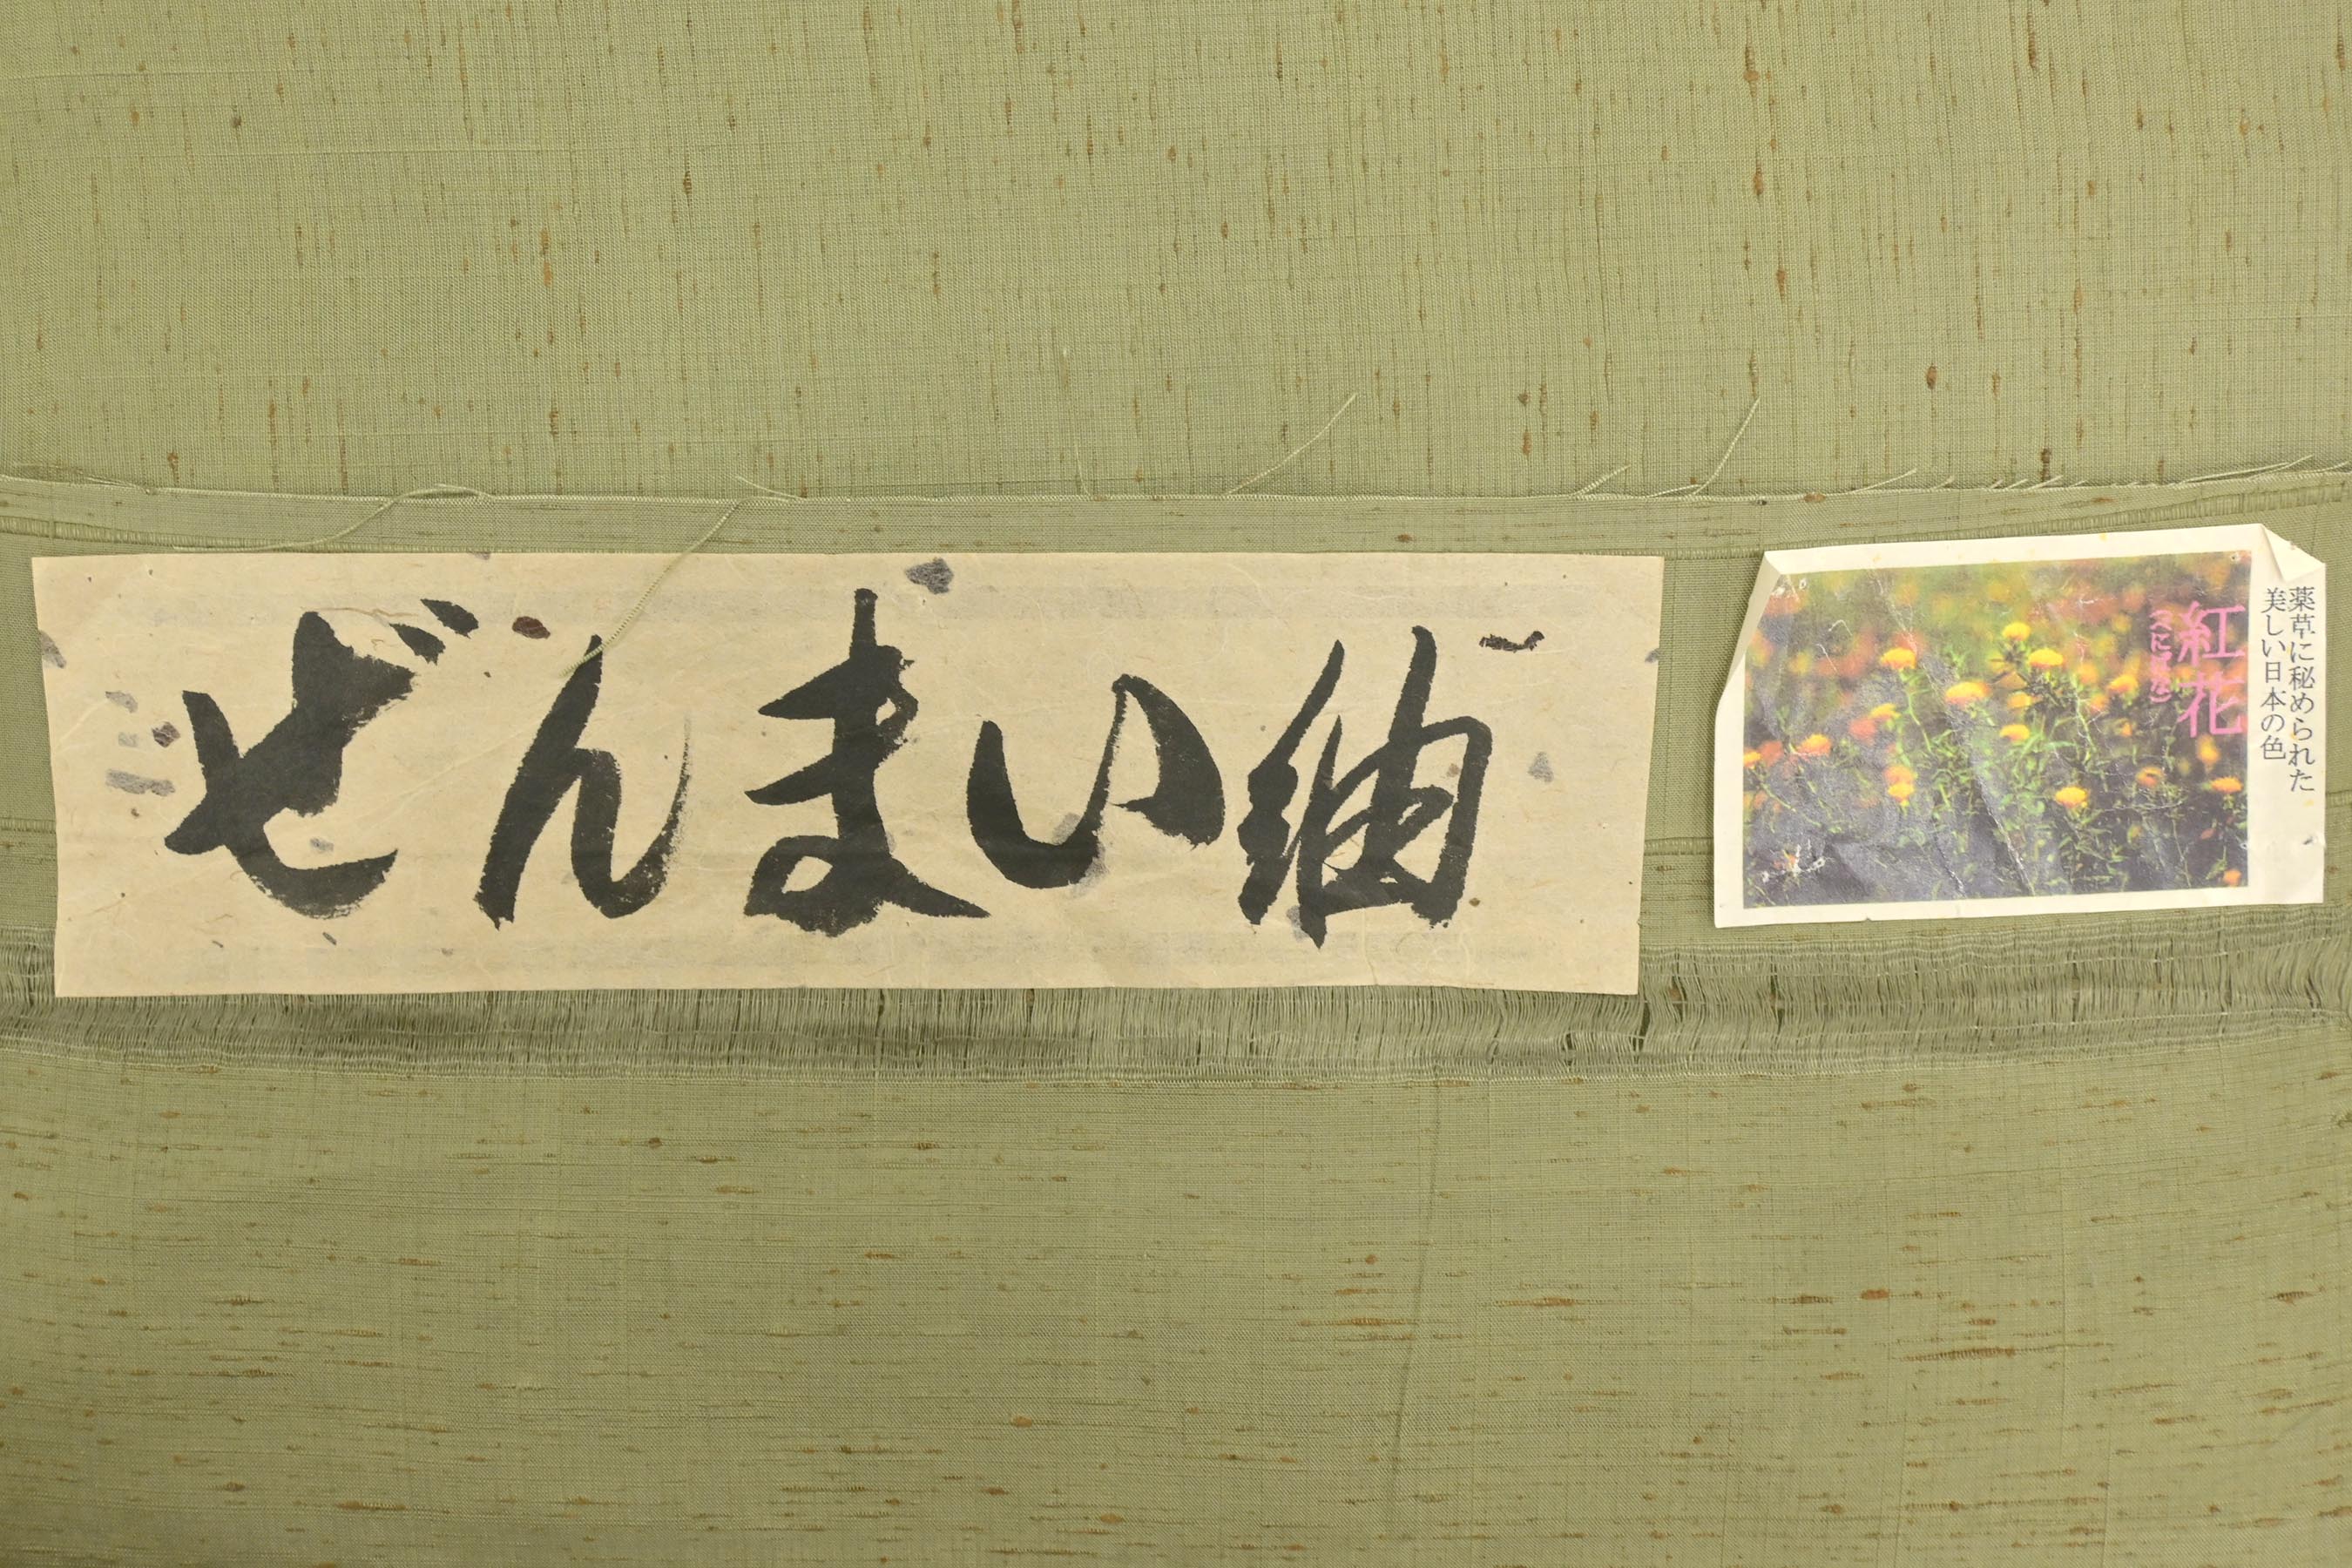 ぜんまい紬
紅花
(べにばな)
薬草に秘められた
美しい日本の色